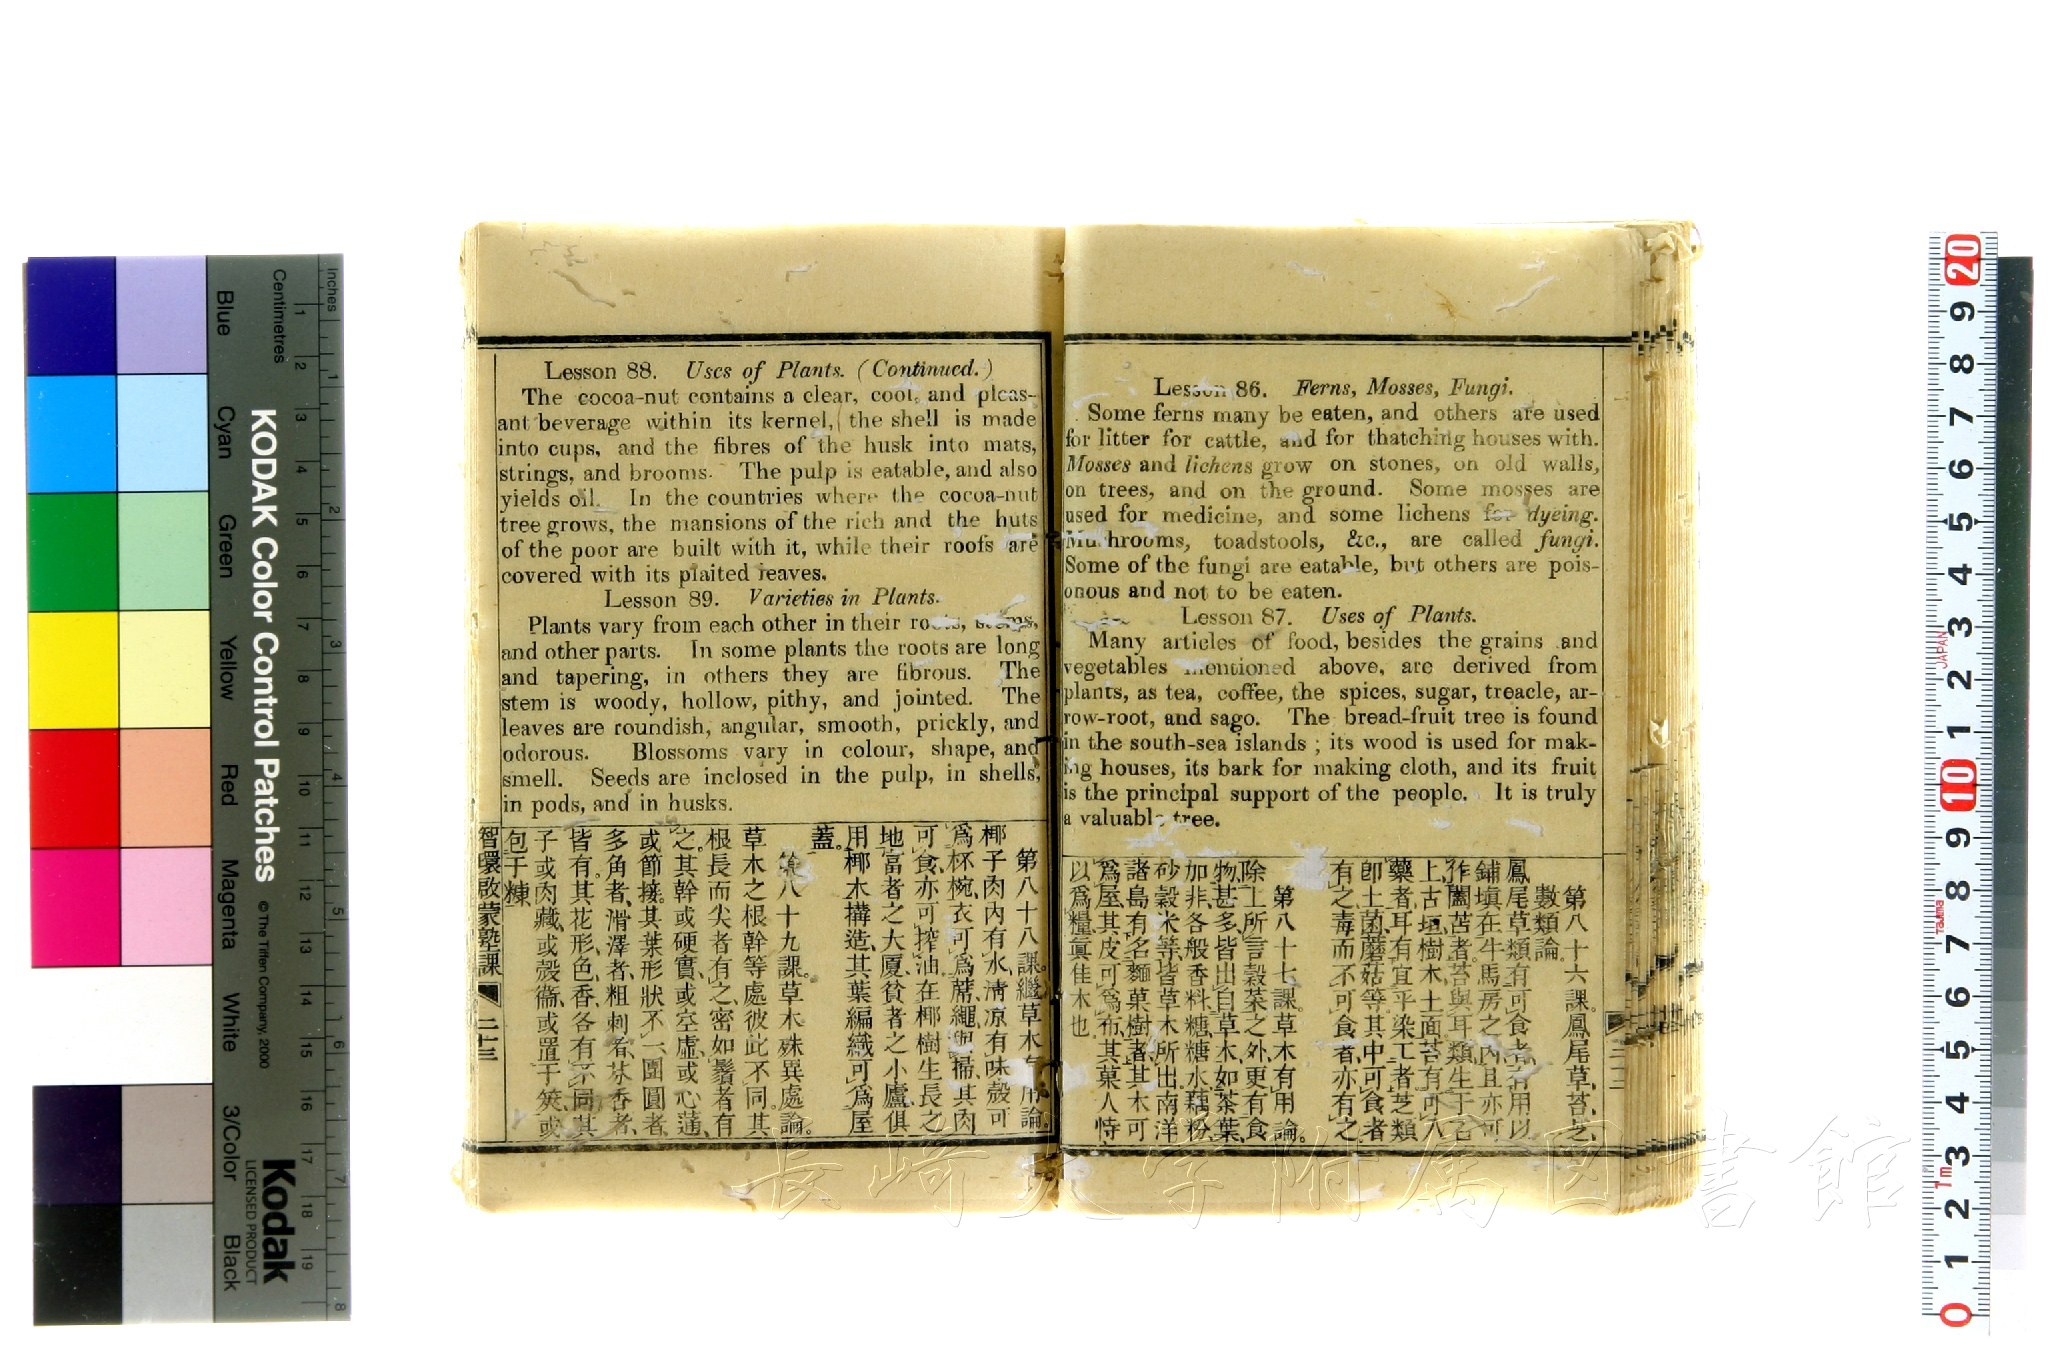 Lesson 86. Ferns, Mosses, Fungi.
Some ferns many be eaten, and others are used
for litter for cattle, and for thatching houses with.
Mosses and lichens grow on stones, on old walls,
on trees, and on the ground. Some mosses are
used for medicine, and some lichens for dyeing.
Mushrooms, toadstools, &c., are called fungi.
Some of the fungi are eatable, but others are pois-
onous and not to be eaten.
Lesson 87. Uses of Plants.
Many articles of food, besides the grains and
vegetables mentioned above, are derived from
plants, as tea, coffee, the spices, sugar, treacle, ar-
row-root, and sago. The bread-fruit tree is found
in the south-sea islands ; its wood is used for mak-
ing houses, its bark for making cloth, and its fruit
is the principal support of the people. It is truly
a valuable tree.
第八十六課。鳳尾草、苔、芝、
數類論。
鳳尾草類、有可食者、有用以
鋪填在牛馬房之內、且亦可
作闔苫者。苔與耳類、生于石
上、古垣、樹木、土面、苔有可入
藥者、耳有宜乎染工者、芝類
卽土菌、蘑菇等、其中可食者
有之、毒而不可食者、亦有之、
第八十七課。草木有用論。
除上所言穀菜之外、更有食
物甚多、皆出自草木、如茶葉、
加非、各般香料、糖、糖水、藕粉、
砂穀米等、皆草木所出、南洋
諸島、有名麵菓樹者、其木可
爲屋、其皮可爲布、其菓人恃
以爲糧、眞佳木也
Lesson 88. Uses of Plants. (Continued.)
The cocoa-nut contains a clear, cool, and pleas-
ant beverage within its kernel, the shell is made
into cups, and the fibres of the husk into mats,
strings, and brooms. The pulp is eatable, and also
yields oil. In the countries where the cocoa-nut
tree grows, the mansions of the rich and the huts
of the poor are built with it, while their roofs are
covered with its plaited leaves.
Lesson 89. Varieties in Plants.
Plants vary from each other in their roots, stems,
and other parts. In some plants the roots are long
and tapering, in others they are fibrous. The
stem is woody, hollow, pithy, and jointed. The
leaves are roundish, angular, smooth, prickly, and
odorous. Blossoms vary in colour, shape, and
smell. Seeds are inclosed in the pulp, in shells,
in pods, and in husks.
第八十八課。繼草木有用論。
椰子肉內有水、淸凉有味、殼可
爲杯椀、衣可爲蓆、繩、與掃、其肉
可食、亦可搾油、在椰樹生長之
地、富者之大厦、貧者之小廬、俱
用椰木搆造、其葉編織、可爲屋
蓋。
第八十九課。草木殊異處論。
草木之根幹等處、彼此不同。其
根長而尖者有之、密如鬚者有
之。其幹或硬實、或空虛、或心蓪、
或節接。其葉形狀不一、圍圓者、
多角者、滑澤者、粗刺者、芬香者、
皆有。其花形、色、香、各有不同。其
子或肉藏、或殼衞、或置于筴、或
包于糠、
智環啟蒙塾課 二十三
長崎大学附属図書館
KODAK Color Control Patches
© The Tiffen Company, 2000
Kodak
LICENSED PRODUCT
Inches
1 2 3 4 5 6 7 8
Centimetres
1 2 3 4 5 6 7 8 9 10 11 12 13 14 15 16 17 18 19
Blue
Cyan
Green
Yellow
Red
Magenta
White
3/Color
Black
20 9 8 7 6 5 4 3 2 1 10 9 8 7 6 5 4 3 2 1 0
JAPAN
Tajima
1m